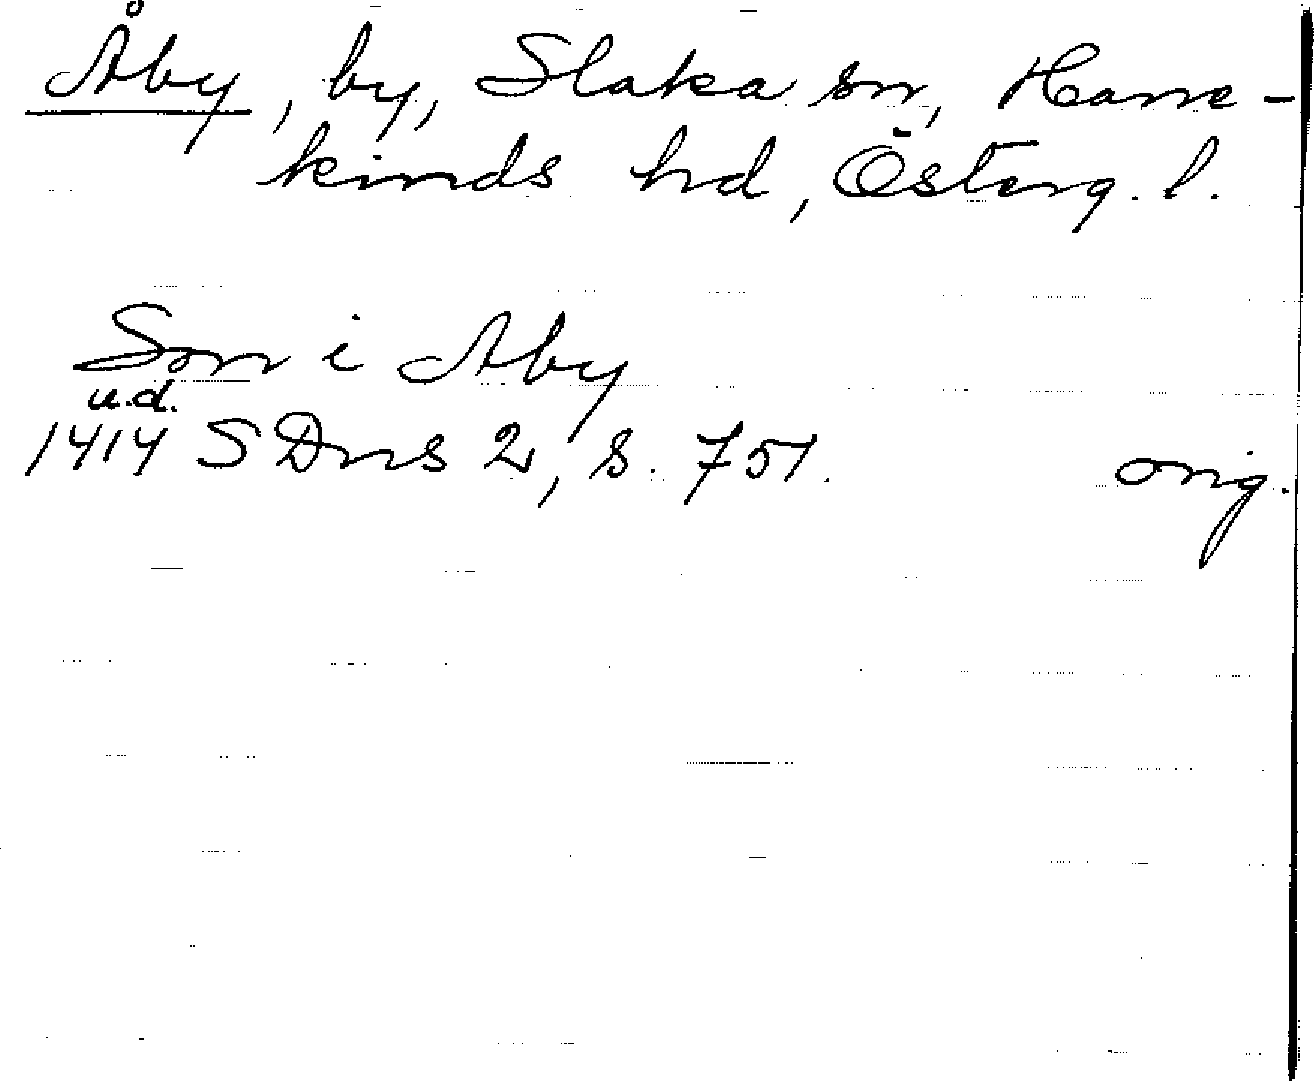 Åby, by, Slaka sn, Hane-
kinds hd, Österg. l.
Son i Aby
u.d.
1414 SDns 2, s. 751. orig.